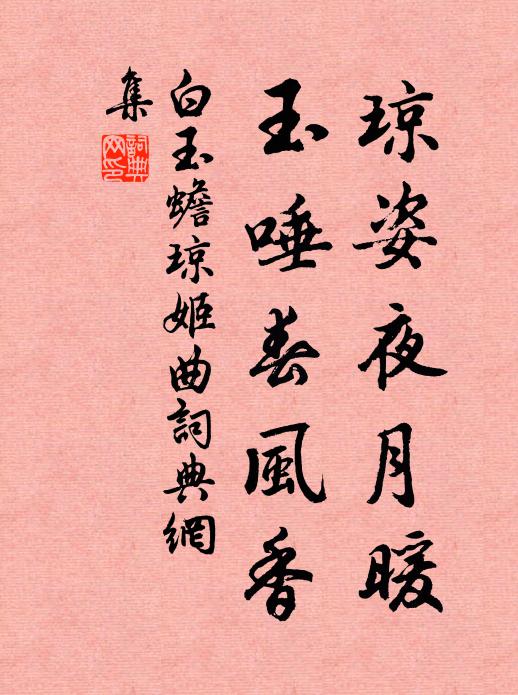 琼姿夜月暖
玉唾春風香
白玉蟾琼姬曲詞典網
集
詞典网印